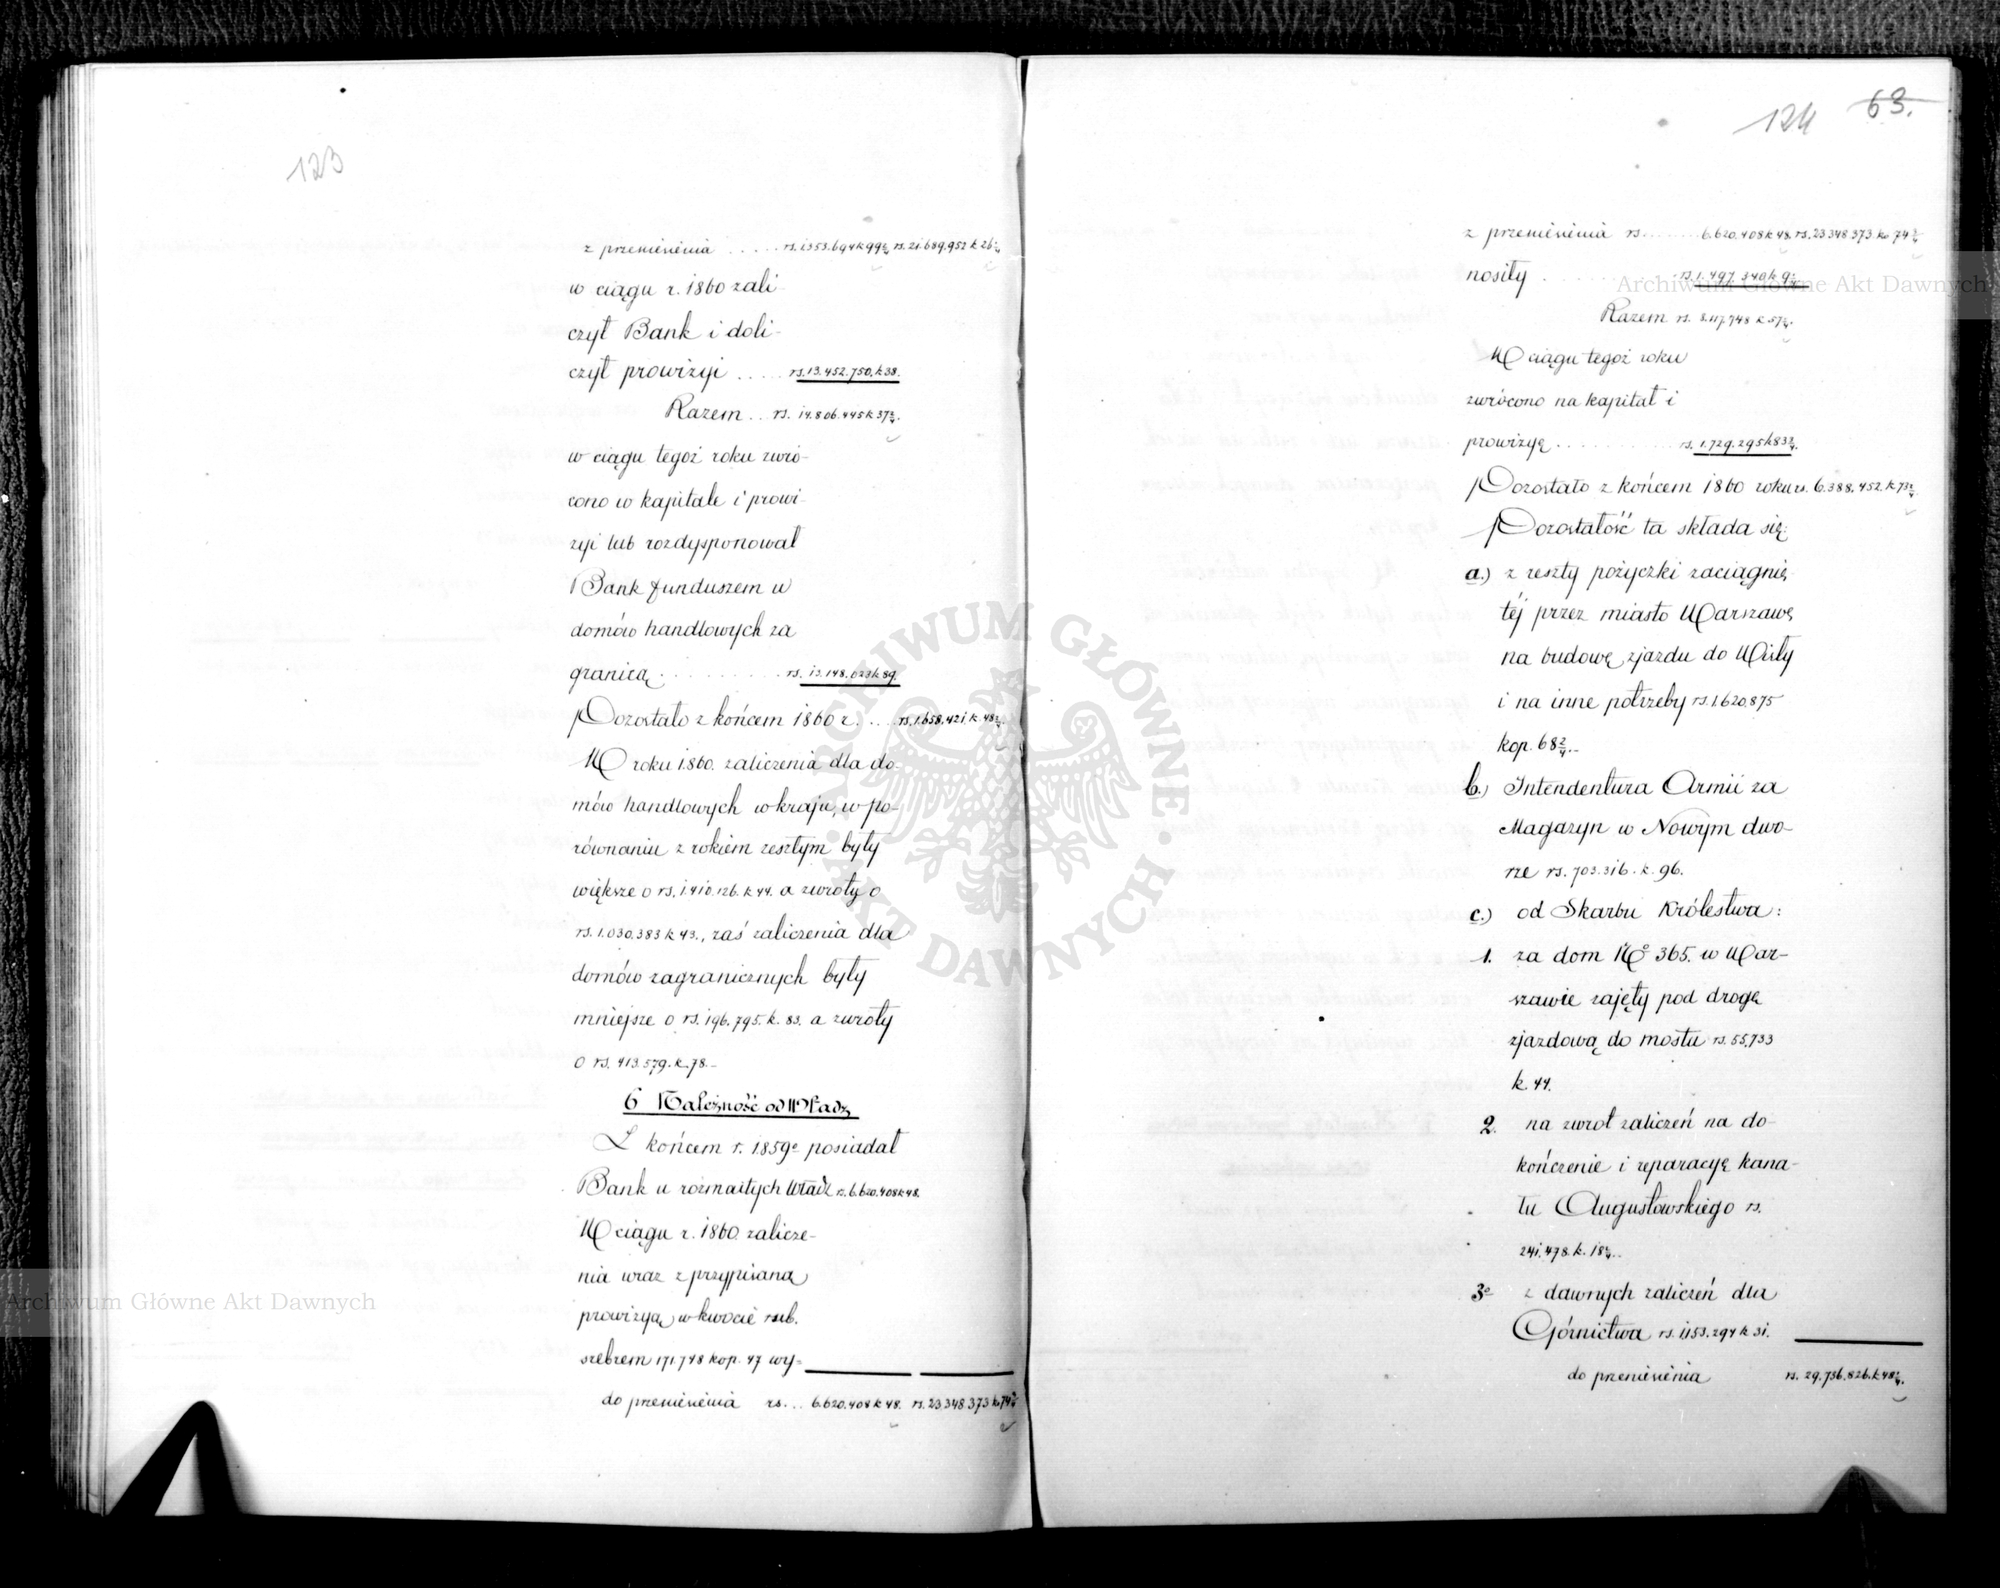 123
z przeniesienia .... rs. 1353.694 k 99 2/4 rs. 21.689.952 k 26 2/4
w ciągu r. 1860 zali-
czył Bank i doli-
czył prowizyi .... rs. 13.452.750, k 38.
Razem .. rs. 14.806.445 k 37 2/4.
w ciągu tegoż roku zwró-
cono w kapitale i prowi-
zyi lub rozdysponował
Bank funduszem u
domów handlowych za
granicą ......... rs. 13.148.023 k 89
Pozostało z końcem 1860 r. ... rs. 1.658.421, k. 48 2/4.
W roku 1860. zaliczenia dla do-
mów handlowych w kraju, w po-
równaniu z rokiem zeszłym były
większe o rs. 1410.126. k 44. a zwroty o
rs. 1.030.383 k 43., zaś zaliczenia dla
domów zagranicznych były
mniejsze o rs. 196.795. k. 83. a zwroty
o rs. 413.579. k. 78.-
6 Należność od Władz
Z końcem r. 1859o posiadał
Bank u rozmaitych Władz rs. 6.620.408 k 48.
W ciągu r. 1860 zalicze-
nia wraz z przypisaną
prowizyą w kwocie rub.
srebrem 171.748 kop. 47 wy-
do przeniesienia rs... 6.620.408 k 48. rs. 23.348.373 k. 74 3/4
124 63.
z przeniesienia rs ........ 6.620.408 k 48. rs. 23.348.373. k. 74 3/4
nosiły ........... rs. 1.497.340 k 9 2/4
Razem rs. 8.117.748 k 57 2/4.
W ciągu tegoż roku
zwrócono na kapitał i
prowizyę .......... rs. 1.729.295 k 83 3/4.
Pozostało z końcem 1860 roku rs. 6.388.452. k 73 3/4
Pozostałość ta składa się:
a.) z reszty pożyczki zaciągnię-
téj przez miasto Warszawę
na budowę zjazdu do Wisły
i na inne potrzeby rs. 1.620.875
kop. 68 2/4.-
b.) Intendentura Armii za
Magazyn w Nowym dwo-
rze rs. 703.316. k. 96.
c.) od Skarbu Królestwa:
1. za dom No 365. w War-
szawie zajęty pod drogę
zjazdową do mostu rs. 55,733
k. 44.
2. na zwrot zaliczeń na do-
kończenie i reparacyę kana-
łu Augustowskiego rs.
241.478. k. 18 2/4..
3o z dawnych zaliczeń dla
Górnictwa rs. 1,153.294 k 31.
do przeniesienia rs. 29.736.826. k 48 2/4.
Archiwum Główne Akt Dawnych
Archiwum Główne Akt Dawnych
ARCHIWUM GŁÓWNE · AKT DAWNYCH ·